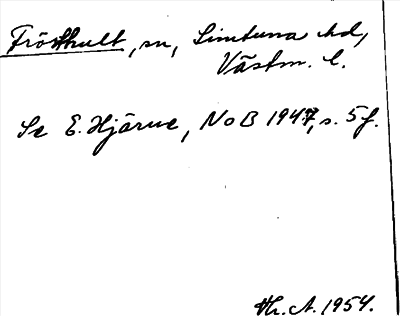 Frösthult, sn, Simtuna hd,
Västm. l.
Se E. Hjärne, NoB 1947, s. 5 f.
Hr. A. 1954.